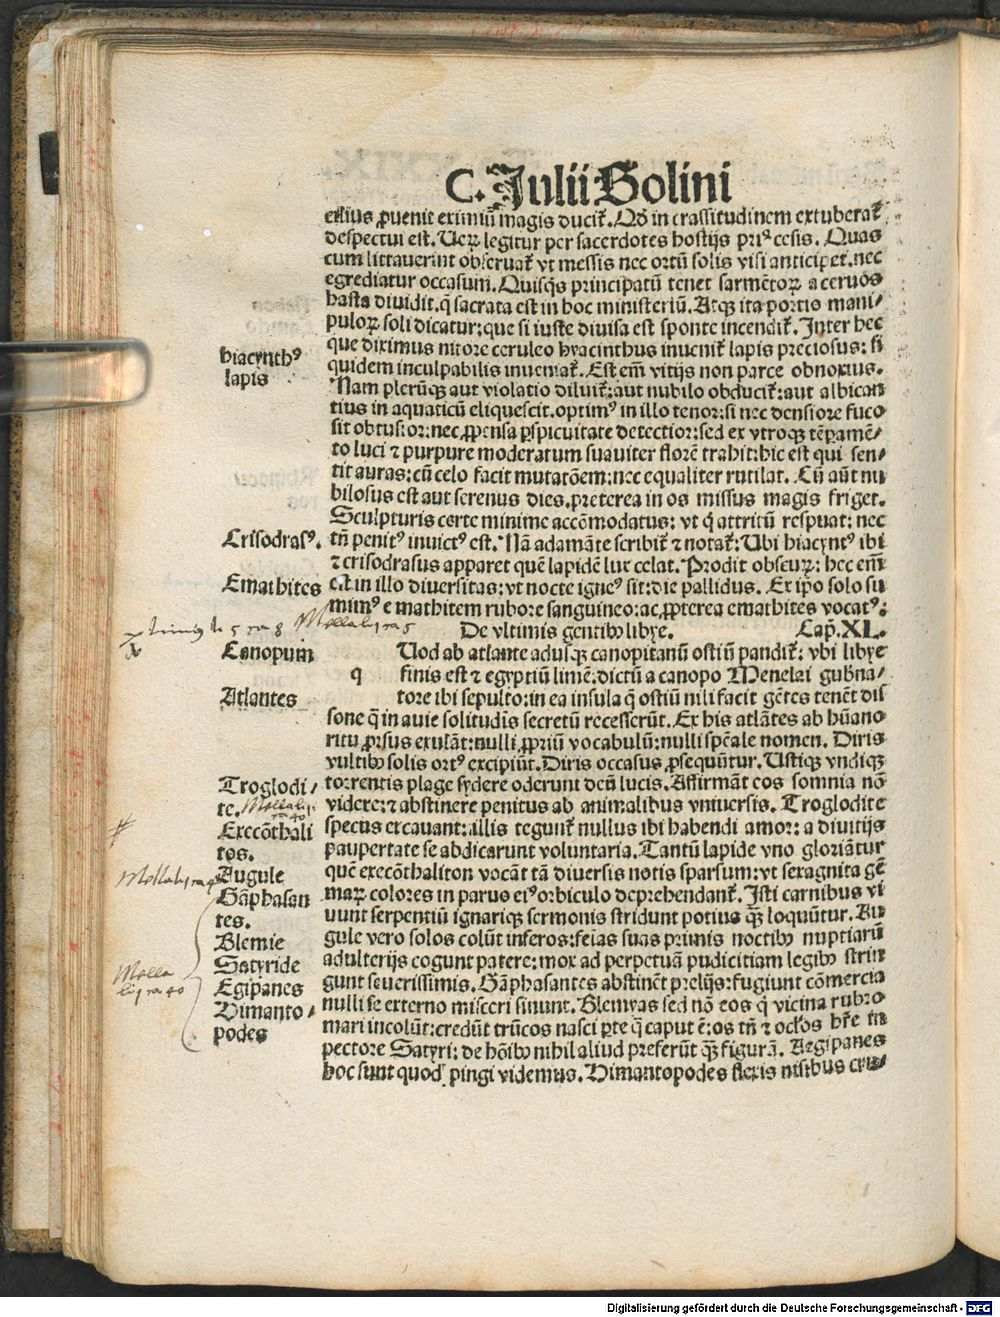 C. Julii Solini
exilius ꝓuenit eximiū magis ducit̄. Qd̄ in crassitudinem extuberat̄
despectui est. Uerꝝ legitur per sacerdotes hostijs priꝰ cesis. Quas
cum littauerint obseruat̄ vt messis nec ortū solis visi anticipet. nec
egrediatur occasum. Quisq̄s principatū tenet sarmētoꝝ a ceruos
hasta diuidit. q̄ sacrata est in hoc ministeriū. Atqꝫ ita portio mani⸗
puloꝝ soli dicatur: que si iuste diuisa est sponte incendit̄. Inter hec
hiacynthꝰ
lapis
que diximus nitore ceruleo hyacinthus inuenit̄ lapis preciosus: si
quidem inculpabilis inueniat̄. Est em̄ vitijs non parce obnoxius.
Nam plerūqꝫ aut violatio diluit̄: aut nubilo obducit̄: aut albican
tius in aquaticū eliquescit. optimꝰ in illo tenor: si nec densiore fuco
sit obtusior: nec ꝓpensa ꝑspicuitate detectior: sed ex vtroqꝫ tēpamē⸗
to luci ⁊ purpure moderatum suauiter florē trahit: hic est qui sen⸗
tit auras: cū celo facit mutatōem: nec equaliter rutilat. Cū aūt nu
bilosus est aut serenus dies. preterea in os missus magis friget.
Sculpturis certe minime accōmodatus: vt q̄ attritū respuat: nec
Crisodrasꝰ.
tn̄ penitꝰ inuictꝰ est. Nā adamāte scribit̄ ⁊ notat̄: Ubi hiacyntꝰ ibi
⁊ crisodrasus apparet quē lapidē lux celat. Prodit obscurꝝ: hec em̄
Emathites
est in illo diuersitas: vt nocte igneꝰ sit: die pallidus. Ex ip̄o solo su
mimꝰ e mathitem rubore sanguineo: ac ꝓpterea emathites vocatꝰ:
De vltimis gentibꝰ libye. Cap̄. XL.
Canopum
Uod ab atlante adusqꝫ canopitanū ostiū pandit̄: vbi libye
q finis est ⁊ egyptiū limē: dictū a canopo Menelai gub̄na⸗
Atlantes
tore ibi sepulto: in ea insula q̄ ostiū nili facit gētes tenēt dis
sone q̄ in auie solitudīs secretū recesserūt. Ex his atlātes ab hūano
ritu ꝓrsus exulāt: nulli ꝓpriū vocabulū: nulli spēale nomen. Diris
vultibꝰ solis ortꝰ excipiūt. Diris occasus ꝓsequūtur. Ustiqꝫ vndiqꝫ
Troglodi⸗
te.
torrentis plage sydere oderunt deū lucis. Affirmāt eos somnia nō
videre: ⁊ abstinere penitus ab animalibus vniuersis. Troglodite
Execōthali
tos.
specus excauant: illis tegunt̄ nullus ibi habendi amor: a diuitijs
paupertate se abdicarunt voluntaria. Tantū lapide vno gloriātur
Augule
quē execōthaliton vocāt tā diuersis notis sparsum: vt sexaginta gē
Gāphasan
tes.
maꝝ colores in paruo eiꝰ orbiculo deprehendant̄. Isti carnibus vi
uunt serpentiū ignariqꝫ sermonis stridunt potius qꝫ̄ loquūtur. Au
gule vero solos colūt inferos: feīas suas primis noctibꝰ nuptiarū
Blemie
Satyride
adulterijs cogunt patere: mox ad perpetuā pudicitiam legibꝰ strin
Egipanes
gunt seuerissimis. Gāphasantes abstinēt prelijs: fugiunt cōmercia
Himanto⸗
podes
nulli se externo misceri sinunt. Blemyas sed nō eos q̄ vicina rubro
mari incolūt: credūt trūcos nasci ꝑte q̄ caput ē: os tn̄ ⁊ ocl̄os hr̄e in
pectore Satyri: de hōibꝰ nihil aliud preferūt qꝫ̄ figurā. Aegipanes
hoc sunt quod pingi videmus. Himantopodes flexis nisibus cru⸗
Digitalisierung gefördert durch die Deutsche Forschungsgemeinschaft - DFG